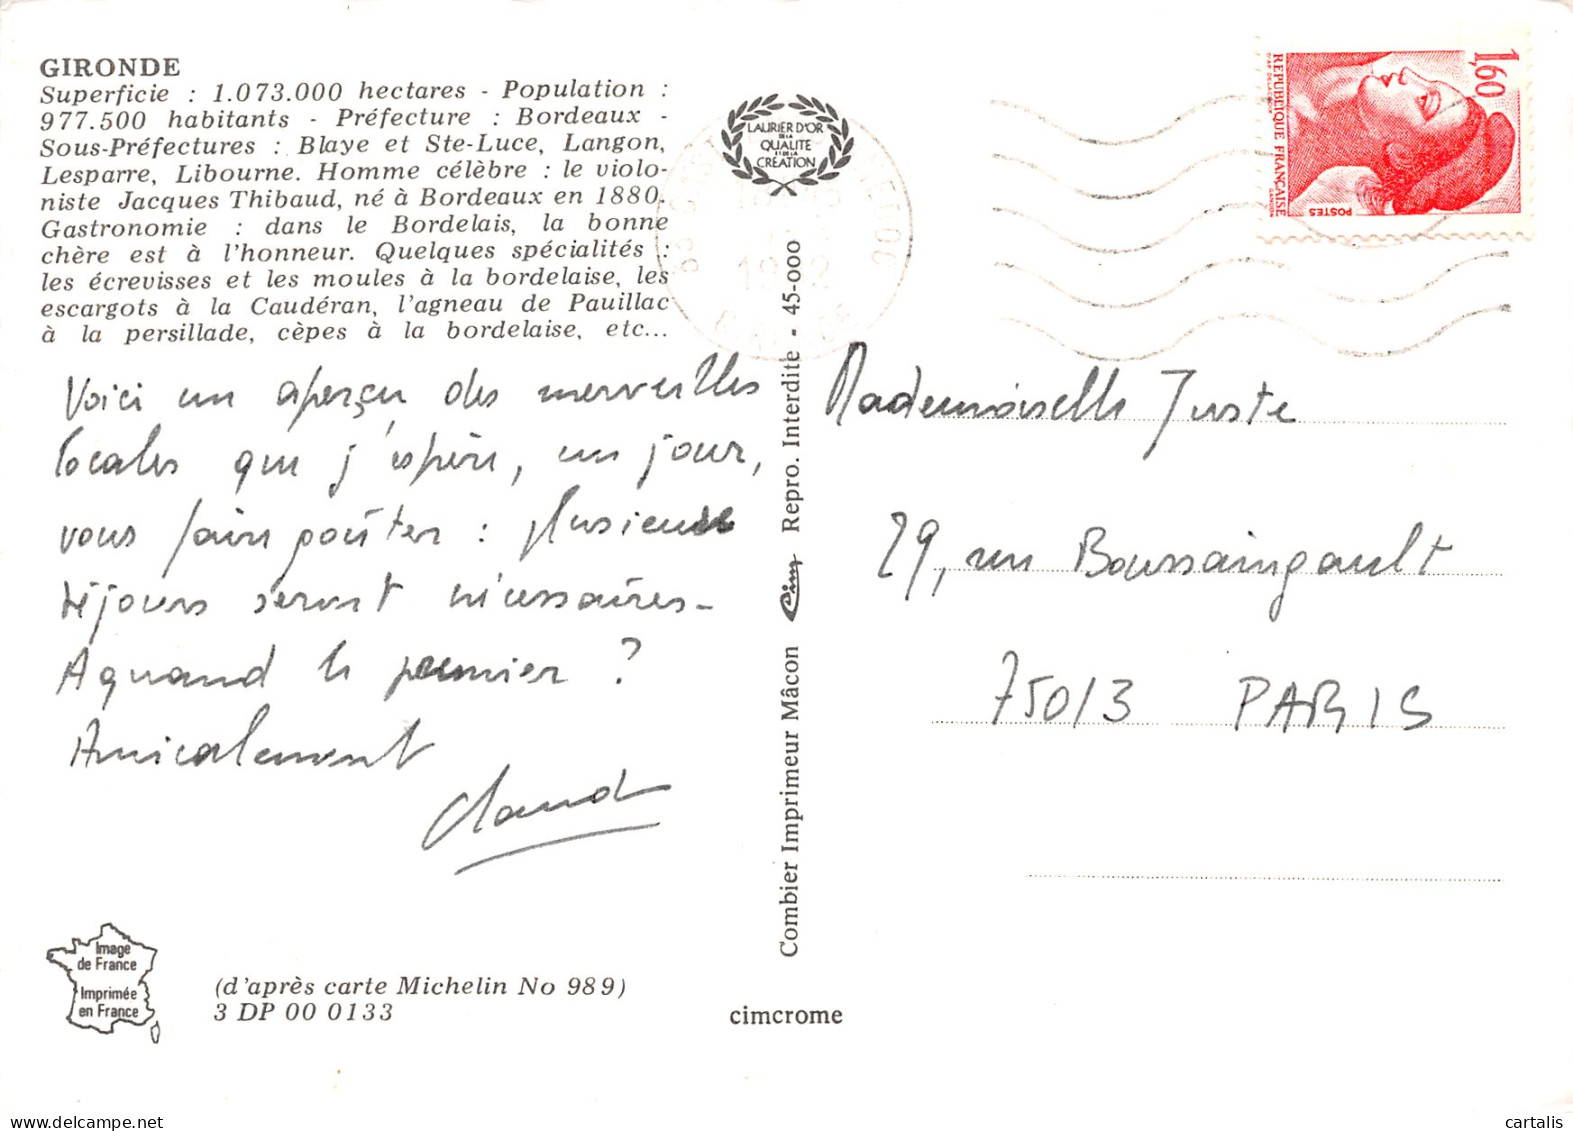 GIRONDE
Superficie : 1.073.000 hectares - Population :
977.500 habitants - Préfecture : Bordeaux -
Sous-Préfectures : Blaye et Ste-Luce, Langon,
Lesparre, Libourne. Homme célèbre : le violo-
niste Jacques Thibaud, né à Bordeaux en 1880.
Gastronomie : dans le Bordelais, la bonne
chère est à l'honneur. Quelques spécialités :
les écrevisses et les moules à la bordelaise, les
escargots à la Caudéran, l'agneau de Pauillac
à la persillade, cèpes à la bordelaise, etc...
Voici un aperçu des merveilles
locales que j'espère, un jour,
vous faire goûter : plusieurs
séjours seront nécessaires -
A quand le premier ?
Amicalement
Claude
Image
de France
Imprimée
en France
(d'après carte Michelin No 989)
3 DP 00 0133
LAURIER D'OR
DE LA
QUALITE
ET DE LA
CREATION
1982
Combier Imprimeur Mâcon Cim Repro. Interdite - 45-000
cimcrome
1,60
REPUBLIQUE FRANÇAISE
POSTES
GANDON
Mademoiselle Juste
29, rue Boussaingault
75013 PARIS
cartalis
delcampe.net